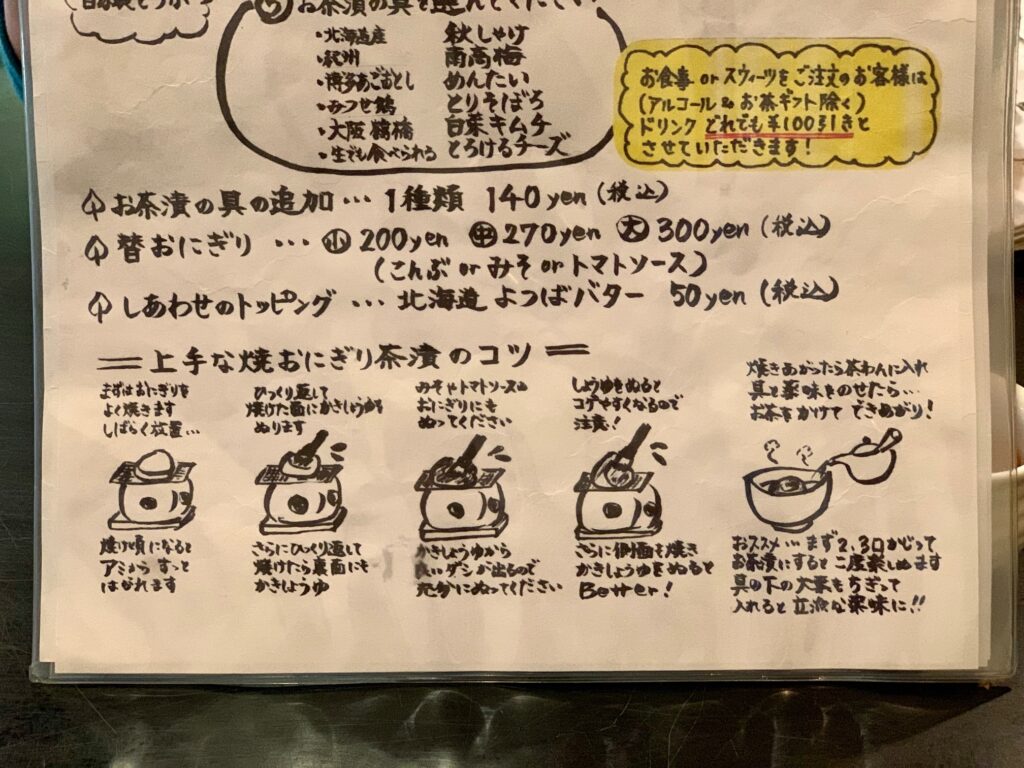 自家製とうふ
㋒ お茶漬の具を選んでください
・北海道産 秋しゃけ
・紀州 南高梅
・博多あごおとし めんたい
・みつせ鶏 とりそぼろ
・大阪 鶴橋 白菜キムチ
・生でも食べられる とろけるチーズ
お食事 or スウィーツをご注文のお客様は
(アルコール & お茶ギフト除く)
ドリンク どれでも¥100引きと
させていただきます!
お茶漬の具の追加… 1種類 140yen (税込)
替おにぎり … ㊙小 200yen ㊥270yen 大 300yen (税込)
(こんぶ or みそ or トマトソース)
しあわせのトッピング … 北海道 よつばバター 50yen (税込)
上手な焼おにぎり茶漬のコツ
まずはおにぎりを
よく焼きます
しばらく放置…
焼け頃になると
アミから すっと
はなれます
ひっくり返して
焼けた面にかきしょうゆを
ぬります
さらにひっくり返して
焼けたら裏面にも
かきしょうゆ
みそやトマトソースは
おにぎりにも
ぬってください
かきしょうゆから
いいダシが出るので
充分にぬってください
しょうゆをぬると
コゲやすくなるので
注意!
さらに側面も焼き
かきしょうゆをぬると
Better!
焼きあがったら茶わんに入れ
具と薬味をのせたら…
お茶をかけて できあがり!
おススメ… まず2,3口かじって
お茶漬にすると ご度楽しめます
具の下の大葉をちぎって
入れると 立派な薬味に!!